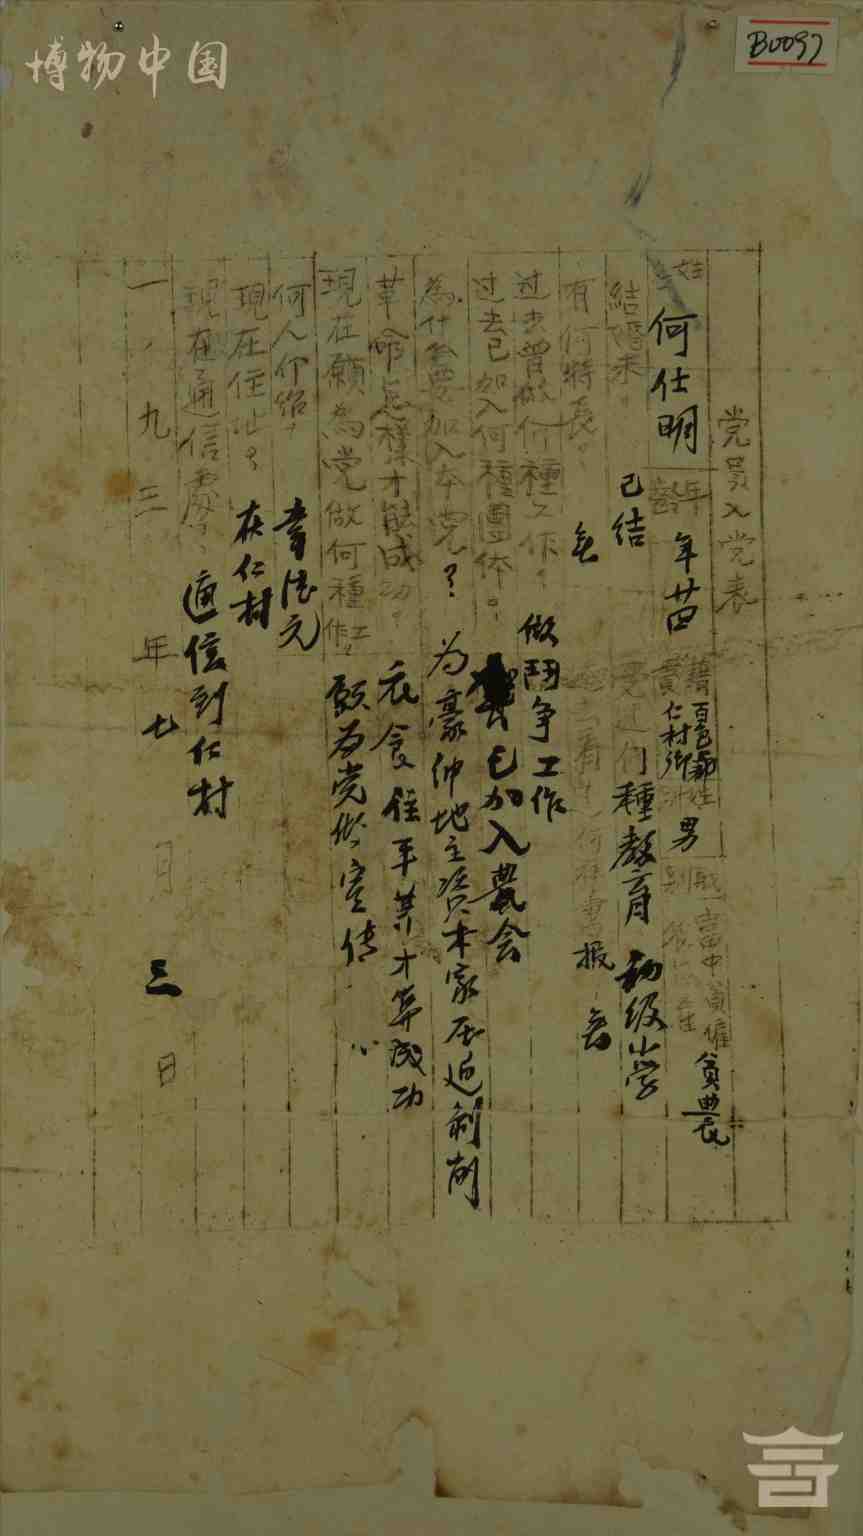 博物中国
B0097
党员入党表
姓 何仕明 年齡 年廿四 籍貫 百色 仁村鄉 姓別 男 富中貧僱 貧農
結婚未 已结 受过何種教育 初级小学
有何特長 無 过去看过何種書報 無
过去曾做何種工作 做鬥争工作
过去已加入何種團体 已加入農会
為什么要加入本党 为豪绅地主资本家压迫剥削
革命怎樣才能成功 衣食住平等才算成功
現在願為党做何種工作 願为党做宣传
何人介绍 韋德元
現在住址 在仁村
現在通信處 通信到仁村
一九三 年七月三日